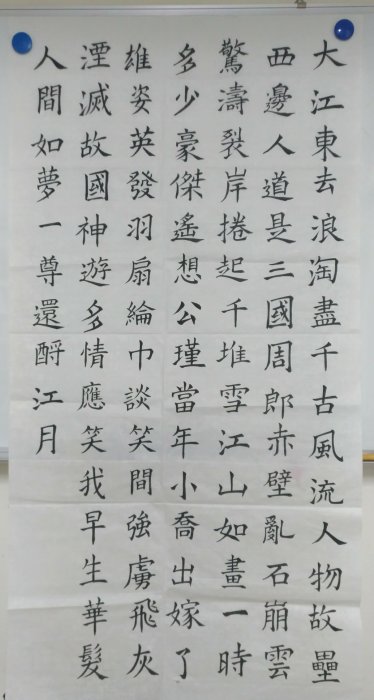 大江東去浪淘盡千古風流人物故壘
西邊人道是三國周郎赤壁亂石崩雲
驚濤裂岸捲起千堆雪江山如畫一時
多少豪傑遙想公瑾當年小喬出嫁了
雄姿英發羽扇綸巾談笑間強虜飛灰
湮滅故國神遊多情應笑我早生華髮
人間如夢一尊還酹江月